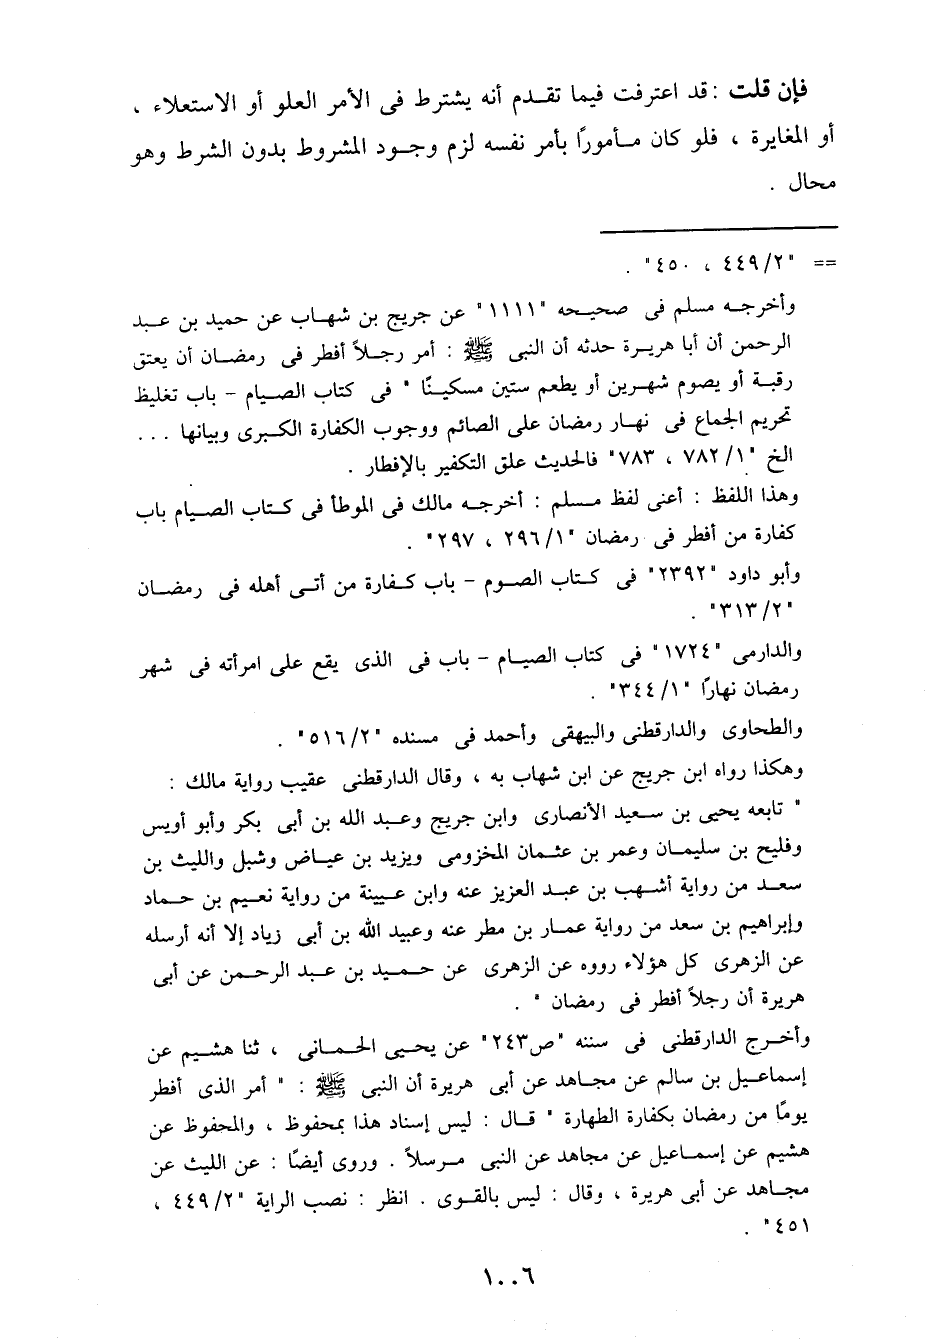 فإن قلت : قد اعترفت فيما تقـدم أنه يشترط فى الأمر العلو أو الاستعلاء ،
أو المغايرة ، فلو كان مـأمورًا بأمر نفسه لزم وجـود المشروط بدون الشرط وهو
محال .
== "٤٤٩/٢ ، ٤٥٠" .
وأخرجـه مسلم فى صحيـحه "١١١١" عن جريج بن شهـاب عن حميد بن عبـد
الرحمن أن أبا هريـرة حدثه أن النبى ﷺ : أمر رجـلاً أفطر فى رمضـان أن يعتق
رقبـة أو يصوم شهـرين أو يطعم ستين مسكينًا " فى كتاب الصـيام – باب تغليظ
تحريم الجماع فى نهـار رمضان على الصائم ووجوب الكفارة الكـبرى وبيانها ...
الخ "٧٨٢/١ ، ٧٨٣" فالحديث علق التكفير بالإفطار .
وهذا اللفظ : أعنى لفظ مـسلم : أخرجـه مالك فى الموطأ فى كـتاب الصـيام باب
كفارة من أفطر فى رمضان "٢٩٦/١ ، ٢٩٧" .
وأبو داود "٢٣٩٢" فى كـتاب الصـوم – باب كـفارة من أتـى أهله فى رمضـان
"٣١٣/٢" .
والدارمى "١٧٢٤" فى كتاب الصيـام – باب فى الذى يقع على امرأته فى شهر
رمضان نهارًا "٣٤٤/١" .
والطحاوى والدارقطنى والبيهقى وأحمد فى مسنده "٥١٦/٢" .
وهكذا رواه ابن جريج عن ابن شهاب به ، وقال الدارقطنى عقيب رواية مالك :
" تابعه يحيى بن سـعيد الأنصارى وابن جريج وعـبد الله بن أبى بكر وأبو أويس
وفليح بن سليمان وعمر بن عثـمان المخزومى ويزيد بن عيـاض وشبل والليث بن
سعـد من رواية أشـهب بن عبـد العزيز عنه وابن عـيينة من رواية نعـيم بن حـماد
وإبراهيم بن سعد من رواية عمـار بن مطر عنه وعبيد الله بن أبى زياد إلا أنه أرسله
عن الزهرى كل هؤلاء رووه عن الزهرى عن حـميد بن عبـد الرحـمن عن أبى
هريرة أن رجلاً أفطر فى رمضان " .
وأخـرج الدارقطنى فى سننه "ص٢٤٣" عن يحيـى الحمـانى ، ثنا هشـيم عن
إسماعـيل بن سالم عن مجـاهد عن أبى هريرة أن النبى ﷺ : " أمر الذى أفطر
يومًا من رمضان بكفارة الظهارة " قـال : ليس إسناد هذا بمحفوظ ، والمحفوظ عن
هشيم عن إسمـاعيل عن مجاهد عن النبى مـرسلاً . وروى أيضًا : عن الليث عن
مجـاهد عن أبى هريرة ، وقال : ليس بالقوى . انظر : نصب الراية "٤٤٩/٢ ،
٤٥١" .
١٠٠٦